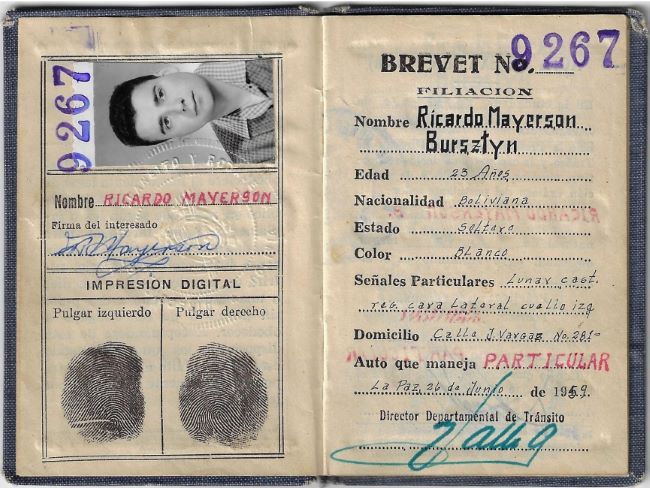 9267
Nombre RICARDO MAYERSON
Firma del interesado
Mayerson
IMPRESION DIGITAL
Pulgar izquierdo Pulgar derecho
BREVET No. 9267
FILIACION
Nombre Ricardo Mayerson
Bursztyn
Edad 23 Años
Nacionalidad Boliviana
Estado Soltero
Color Blanco
Señales Particulares Lunar cast.
reg. cara Lateral cuello izq
Domicilio Calle J. Vargas No. 281
Auto que maneja PARTICULAR
La Paz, 26 de Junio de 1959
Director Departamental de Tránsito